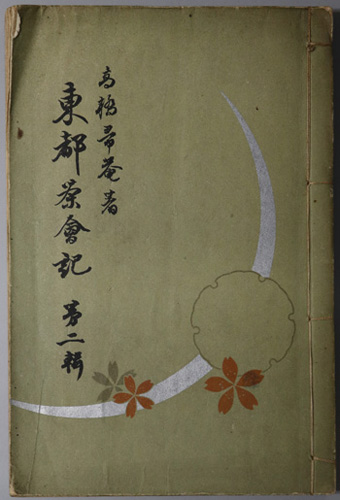 高橋箒庵著
東都茶會記 第二輯